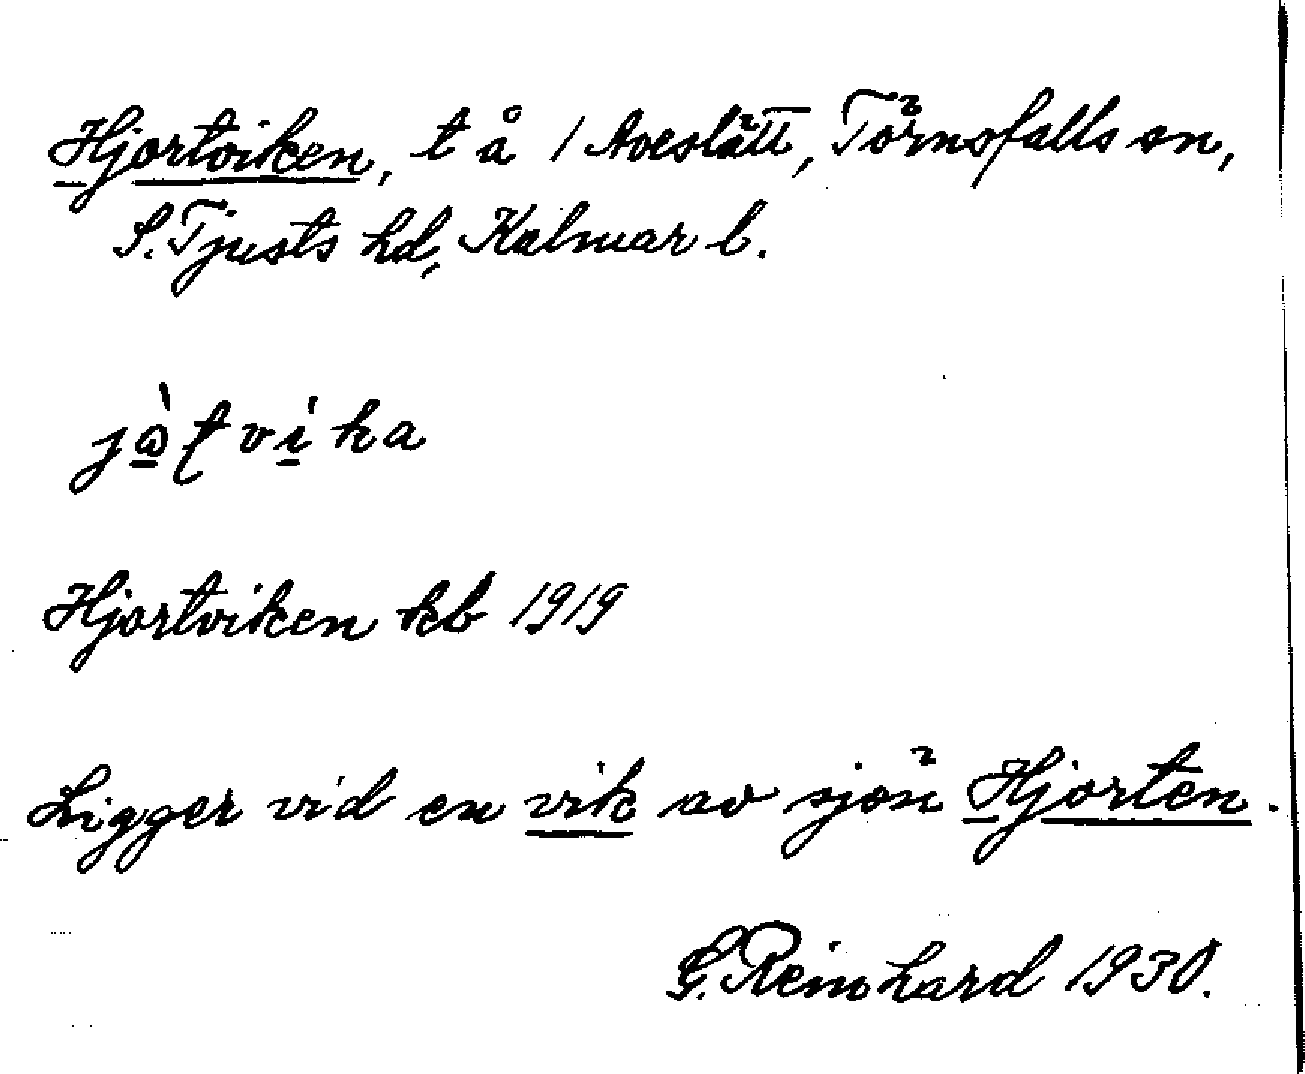 Hjortviken, t å 1 Aveslätt, Törnsfalls sn,
S. Tjusts hd, Kalmar l.
jàtvika
Hjortviken kb 1919
Ligger vid en vik av sjön Hjorten.
G. Reinhard 1930.